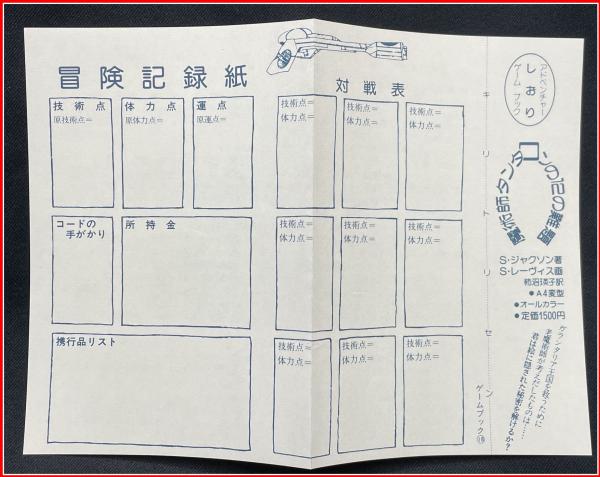 冒険記録紙
技術点
原技術点=
体力点
原体力点=
運点
原運点=
コードの
手がかり
所持金
携行品リスト
対戦表
技術点=
体力点=
技術点=
体力点=
技術点=
体力点=
技術点=
体力点=
技術点=
体力点=
技術点=
体力点=
技術点=
体力点=
技術点=
体力点=
技術点=
体力点=
キリトリセン
ゲームブック⑱
アドベンチャー
ゲームブック
しおり
魔術師タンタロンの12の難題
S・ジャクソン著
S・レーヴィス画
柿沼瑛子訳
●A4変型
●オールカラー
●定価1500円
ガランタリア王国を救うために
老魔術師が考えだしたものは……
君は絵に隠された秘密を解けるか?